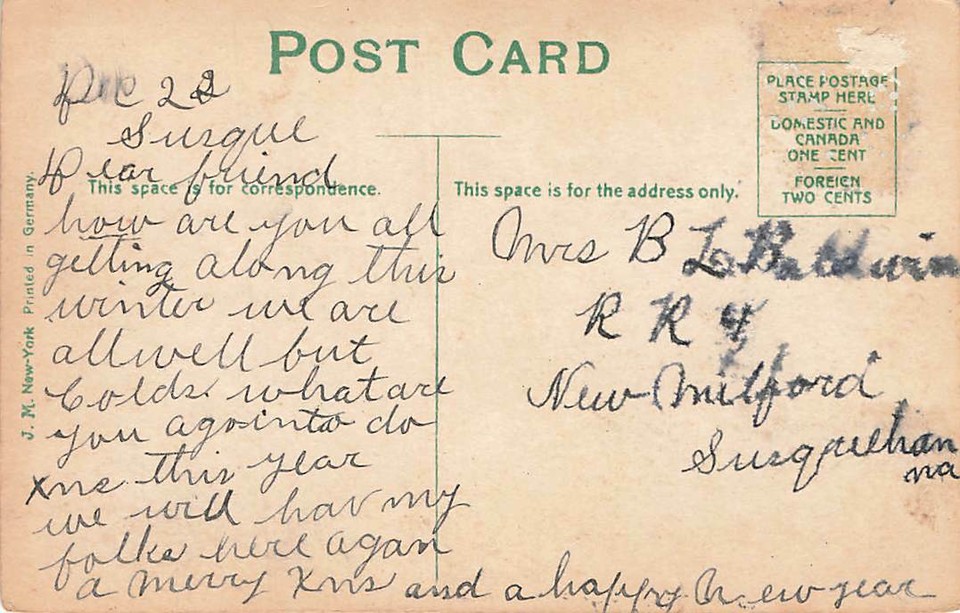 POST CARD
Dec 22
Susque
Dear friend
This space is for correspondence.
how are you all
getting along this
winter we are
all well but
Colds. what are
you agointo do
xms this year
we will hav my
folks here agan
a merry Xms and a happy New year
J. M. New-York Printed in Germany.
This space is for the address only.
PLACE POSTAGE
STAMP HERE
DOMESTIC AND
CANADA
ONE CENT
FOREIGN
TWO CENTS
Mrs B L Baldwin
R R 4
New Milford
Susquehan
na